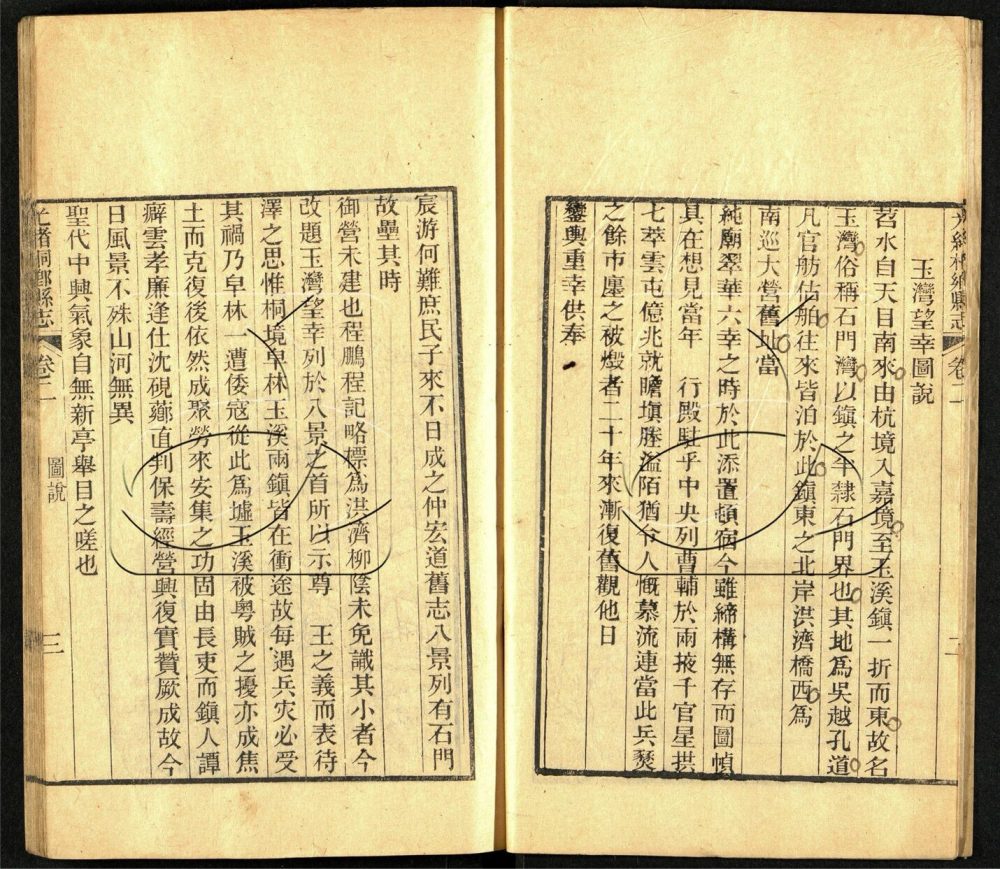 光緒桐鄉縣志 卷二 二
玉灣望幸圖說
苕水自天目南來由杭境入嘉境至玉溪鎮一折而東故名
玉灣俗稱石門灣以鎮之半隸石門界也其地爲吳越孔道
凡官舫估舶往來皆泊於此鎮東之北岸洪濟橋西爲
南巡大營舊址當
純廟翠華六幸之時於此添置頓宿今雖締構無存而圖幀
具在想見當年 行殿駐乎中央列曹輔於兩掖千官星拱
七萃雲屯億兆就瞻塡塍溢陌猶令人慨慕流連當此兵燹
之餘市廛之被燬者二十年來漸復舊觀他日
鑾輿重幸供奉
宸游何難庶民子來不日成之仲宏道舊志八景列有石門
故壘其時
御營未建也程鵬程記略標爲洪濟柳陰未免識其小者今
改題玉灣望幸列於八景之首所以示尊 王之義而表待
澤之思惟桐境皁林玉溪兩鎮皆在衝途故每遇兵灾必受
其禍乃皁林一遭倭寇從此爲墟玉溪被粵賊之擾亦成焦
土而克復後依然成聚勞來安集之功固由長吏而鎮人譚
癖雲孝廉逢仕沈硯薌直判保壽經營興復實贊厥成故今
日風景不殊山河無異
聖代中興氣象自無新亭舉目之嗟也
光緒桐鄉縣志 卷二 圖說 三